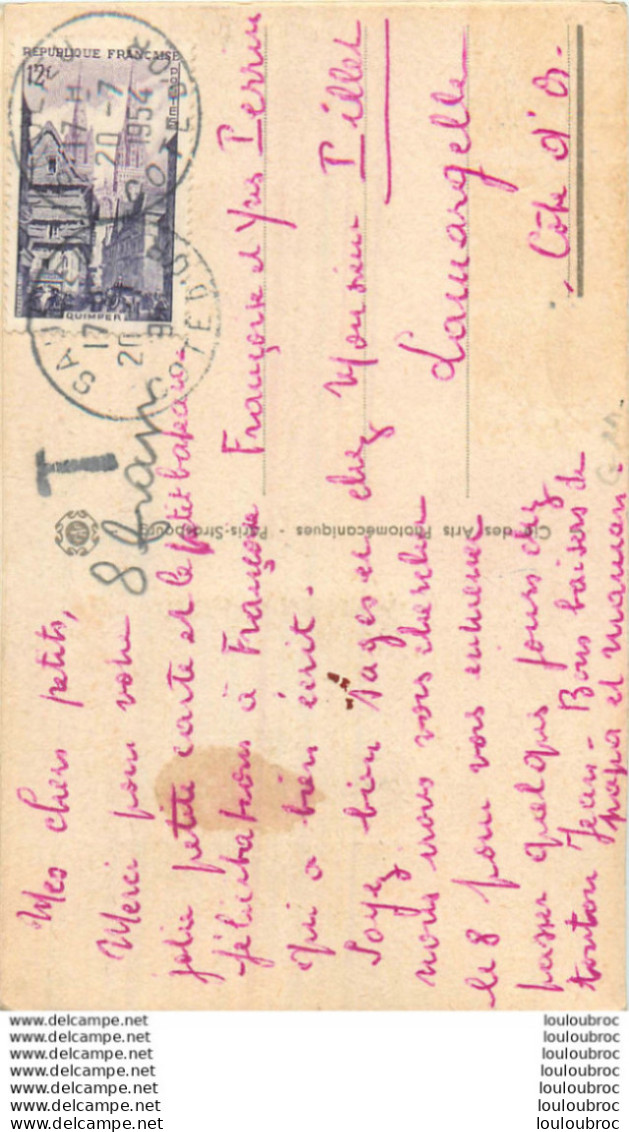 Mes chers petits,
Merci pour votre
jolie petite carte et le petit bateau.
félicitations à Françoise
qui a bien écrit.
Soyez bien sages et
nous irons vous chercher
le 8 pour vous emmener
passer quelques jours chez
tonton Jean - Bons baisers de
papa et maman.
Cie des Arts Photomécaniques - Paris-Strasbourg
T
8 francs
REPUBLIQUE FRANÇAISE
12f
POSTES
QUIMPER
17 H
20 -7
1954
COTE D'OR
Françoise et Yves Perrin
chez Monsieur Pillet
Lamargelle
Côte d'Or.
www.delcampe.net
www.delcampe.net
www.delcampe.net
www.delcampe.net
www.delcampe.net
www.delcampe.net
www.delcampe.net
louloubroc
louloubroc
louloubroc
louloubroc
louloubroc
louloubroc
louloubroc